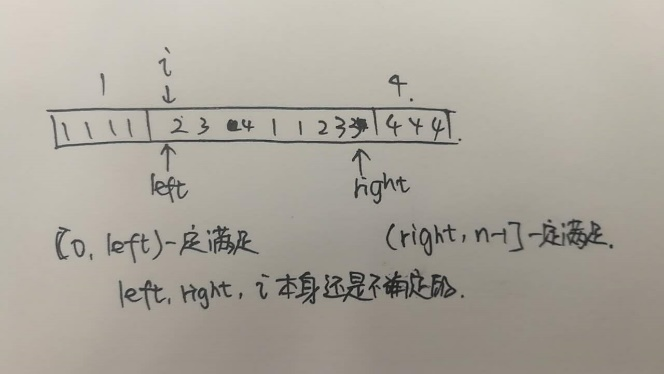 1 i 4.
1 1 1 1 2 3 4 1 1 2 3 3 4 4 4
left right
[0, left)一定满足 (right, n-1]一定满足.
left, right, i 本身还是不确定的.